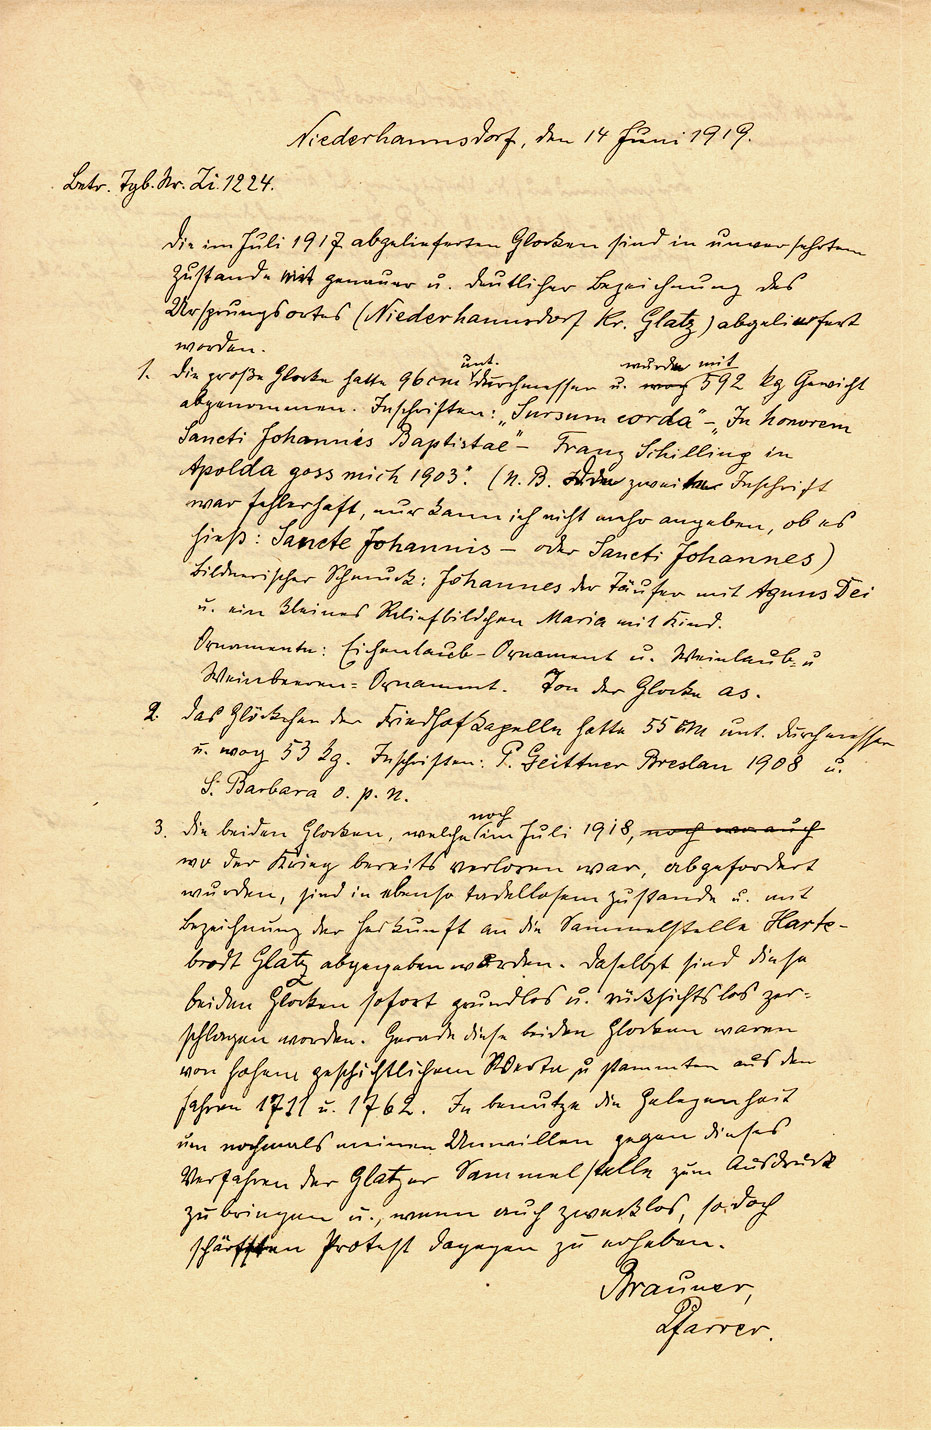 Niederhannsdorf, den 14 Juni 1919.
Betr. Tgb. Nr. Zi. 1224.
Die im Juli 1917 abgelieferten Glocken sind in unversehrtem
Zustande mit genauer u. deutlicher Bezeichnung des
Ursprungsortes (Niederhannsdorf Kr. Glatz) abgeliefert
worden.
1. Die große Glocke hatte 96 cm unt. Durchmesser u. wurde mit 592 kg Gewicht
abgenommen. Inschriften: „Sursum corda" – „In honorem
Sancti Johannis Baptistae" – Franz Schilling in
Apolda goss mich 1903". (N. B. Die zweite Inschrift
war fehlerhaft, nur kann ich nicht mehr angeben, ob es
hieß: Sancte Johannis – oder Sancti Johannes)
Bildnerischer Schmuck: Johannes der Täufer mit Agnus Dei
u. ein kleines Reliefbildchen Maria mit Kind.
Ornamente: Eichenlaub-Ornament u. Weinlaub- u
Weinbeeren-Ornament. Ton der Glocke as.
2. Das Glöckchen der Friedhofkapelle hatte 55 cm unt. Durchmesser
u. wog 53 kg. Inschriften: P. Geittner Breslau 1908 u.
S. Barbara o. p. n.
3. Die beiden Glocken, welche noch im Juli 1918, noch wo auch
wo der Krieg bereits verloren war, abgefordert
wurden, sind in ebenso tadellosem Zustande u. mit
Bezeichnung der Herkunft an die Sammelstelle Harte-
brodt Glatz abgegeben worden. Daselbst sind diese
beiden Glocken sofort grundlos u. rücksichtslos zer-
schlagen worden. Gerade diese beiden Glocken waren
von hohem geschichtlichem Werte u stammten aus den
Jahren 1711 u. 1762. Ich benutze die Gelegenheit
um nochmals meinen Unwillen gegen dieses
Verfahren der Glatzer Sammelstelle zum Ausdruck
zu bringen u., wenn auch zwecklos, so doch
schärfsten Protest dagegen zu erheben.
Brauner,
Pfarrer.